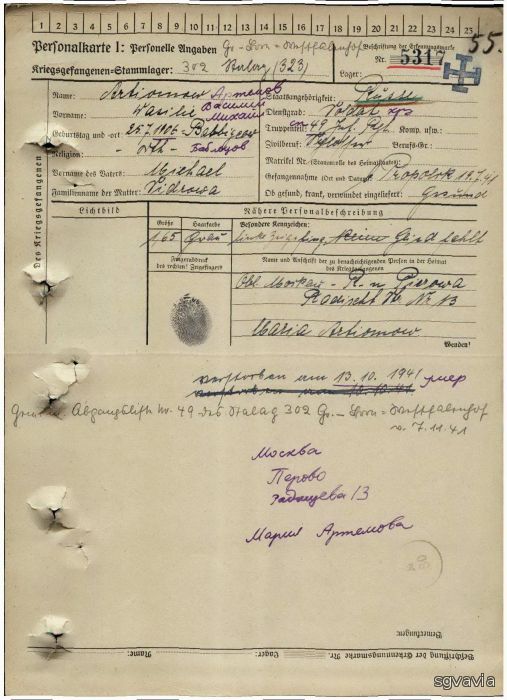 1 2 3 4 5 6 7 8 9 10 11 12 13 14 15 16 17 18 19 20 21 22 23 24 25
55.
Personalkarte I: Personelle Angaben
Gr-Born = Westfalenhof
Beschriftung der Erkennungsmarke
Nr. 5317
Kriegsgefangenen-Stammlager: 302 (323)
Lager:
Des Kriegsgefangenen
Name: Artiomow Артемов
Staatsangehörigkeit: Russe
Vorname: Wasilie Василий Михаил
Dienstgrad: Soldat кр
Geburtstag und -ort: 25.7.1906
Truppenteil: 49 Inf. Rgt. Komp. usw.:
Religion: Orth
Zivilberuf: Schlosser Berufs-Gr.:
Matrikel Nr. (Stammrolle des Heimatstaates):
Vorname des Vaters: Michael
Gefangennahme (Ort und Datum): Propolsk 19.7.41
Familienname der Mutter: Sidrowa
Ob gesund, krank, verwundet eingeliefert: Gesund
Lichtbild
Nähere Personalbeschreibung
Größe Haarfarbe Besondere Kennzeichen:
1,65 Grau linke fehlt
Fingerabdruck des rechten! Zeigefingers
Name und Anschrift der zu benachrichtigenden Person in der Heimat des Kriegsgefangenen
Obl Moskau - R-n Pierowa
Radischt Nr 13
Maria Artiomow
Wenden!
verstorben am 13.10.1941 умер
Abgangsliste Nr. 49 des Stalag 302 Gr.-Born-Westfalenhof
v. 7.11.41
Москва
Перово
Радищева 13
Мария Артемова
Bemerkungen:
Beschriftung der Erkennungsmarke Nr. Lager: Name:
sgvavia